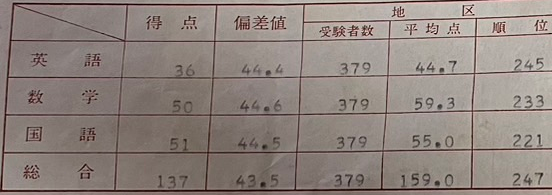 得点 偏差値 地区
受験者数 平均点 順位
英語 36 44.4 379 44.7 245
数学 50 44.6 379 59.3 233
国語 51 44.5 379 55.0 221
総合 137 43.5 379 159.0 247